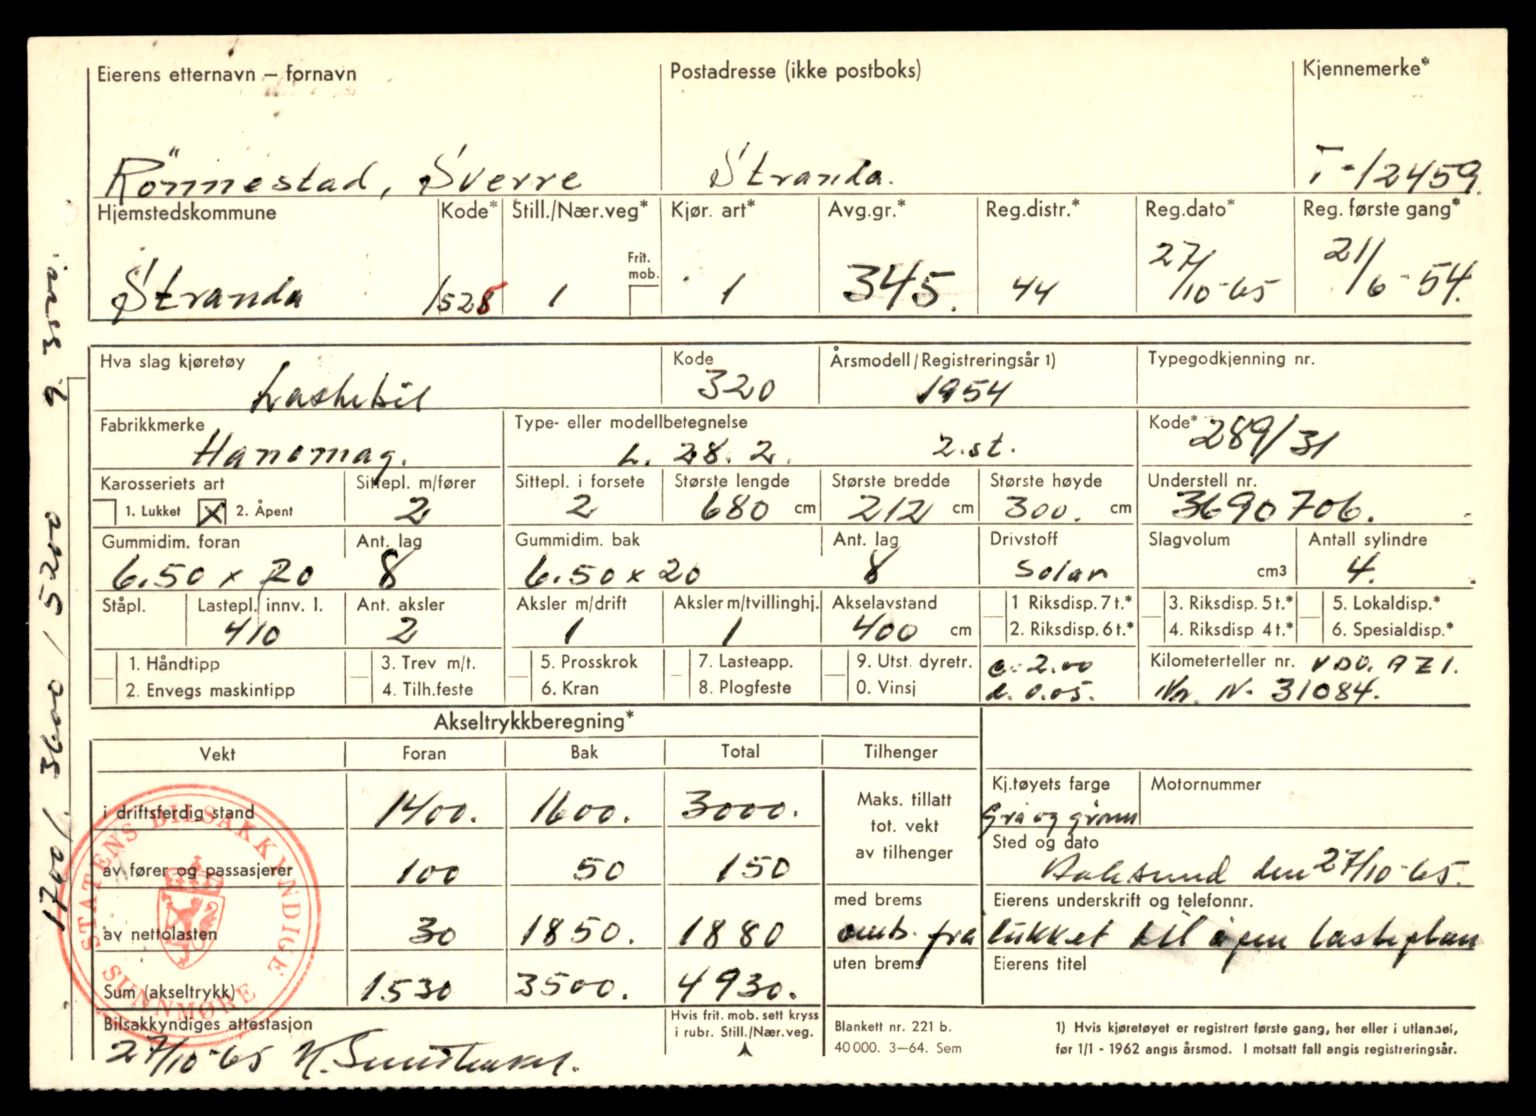 Eierens etternavn – fornavn Postadresse (ikke postboks) Kjennemerke*
Rönnestad, Sverre Stranda. T-12459.
Hjemstedskommune Kode* Still./Nær.veg* Kjør. art* Avg.gr.* Reg.distr.* Reg.dato* Reg. første gang*
Frit. mob.
Stranda 1528 1 1 345. 44 27/10-65 21/6-54.
Hva slag kjøretøy Kode Årsmodell/Registreringsår 1) Typegodkjenning nr.
Lastebil 320 1954
Fabrikkmerke Type- eller modellbetegnelse Kode*
Hanomag. L. 28. 2. 2.st. 289/31
Karosseriets art Sittepl. m/fører Sittepl. i forsete Største lengde Største bredde Største høyde Understell nr.
1. Lukket X 2. Åpent 2 2 680 cm 212 cm 300. cm 3690706.
Gummidim. foran Ant. lag Gummidim. bak Ant. lag Drivstoff Slagvolum Antall sylindre
6.50 x 20 8 6.50 x 20 8 Solar cm3 4.
Ståpl. Lastepl. innv. l. Ant. aksler Aksler m/drift Aksler m/tvillinghj. Akselavstand 1 Riksdisp. 7 t.* 3. Riksdisp. 5 t.* 5. Lokaldisp.*
410 2 1 1 400 cm 2. Riksdisp. 6 t.* 4. Riksdisp 4 t.* 6. Spesialdisp.*
1. Håndtipp 3. Trev m/t. 5. Prosskrok 7. Lasteapp. 9. Utst. dyretr. c. 2.00 Kilometerteller nr. VDO. AZ1.
2. Envegs maskintipp 4. Tilh.feste 6. Kran 8. Plogfeste 0. Vinsj d. 0.05. Nr. N. 31084.
Akseltrykkberegning*
Vekt Foran Bak Total Tilhenger
i driftsferdig stand 1400. 1600. 3000. Maks. tillatt tot. vekt av tilhenger Kj.tøyets farge Motornummer
Grå og grønn
Sted og dato
av fører og passasjerer 100 50 150 Aalesund den 27/10-65.
med brems Eierens underskrift og telefonnr.
av nettolasten 30 1850. 1880 omb. fra lukket til åpen lasteplan
uten brems Eierens titel
Sum (akseltrykk) 1530 3500. 4930.
Bilsakkyndiges attestasjon Hvis frit. mob. sett kryss i rubr. Still./Nær.veg. Blankett nr. 221 b. 1) Hvis kjøretøyet er registrert første gang, her eller i utlandet,
27/10-65 40 000. 3–64. Sem før 1/1 - 1962 angis årsmod. I motsatt fall angis registreringsår.
STATENS BILSAKKYNDIGE SUNNMØRE
1700/. 3600 / 5200